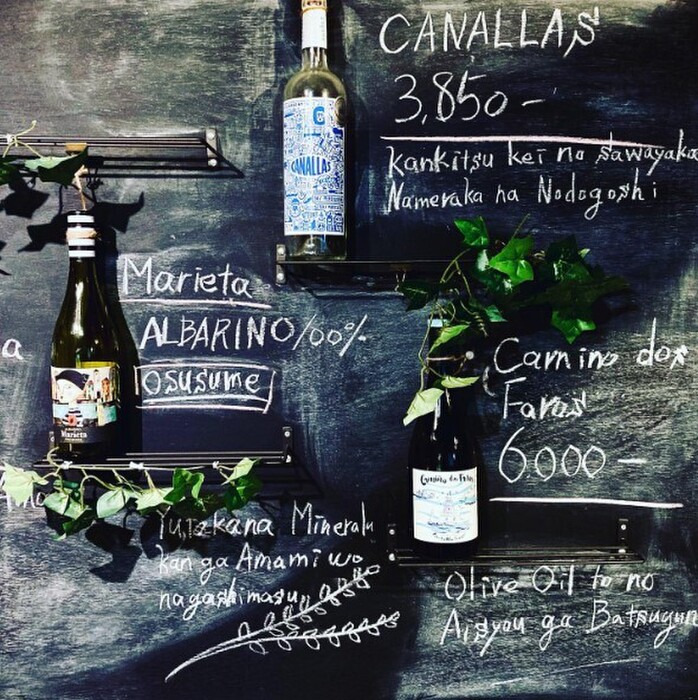 CANALLAS
3,850-
Kankitsu kei no sawayaka
Nameraka na Nodogoshi
CANALLAS
Marieta
ALBARINO 100%
OSUSUME
a
Marieta
Yutakana Mineralu
kan ga Amami wo
nagashimasu
Camino dos
Faros
6000-
Camiño dos Faros
Olive Oil to no
Aisyou ga Batsugun